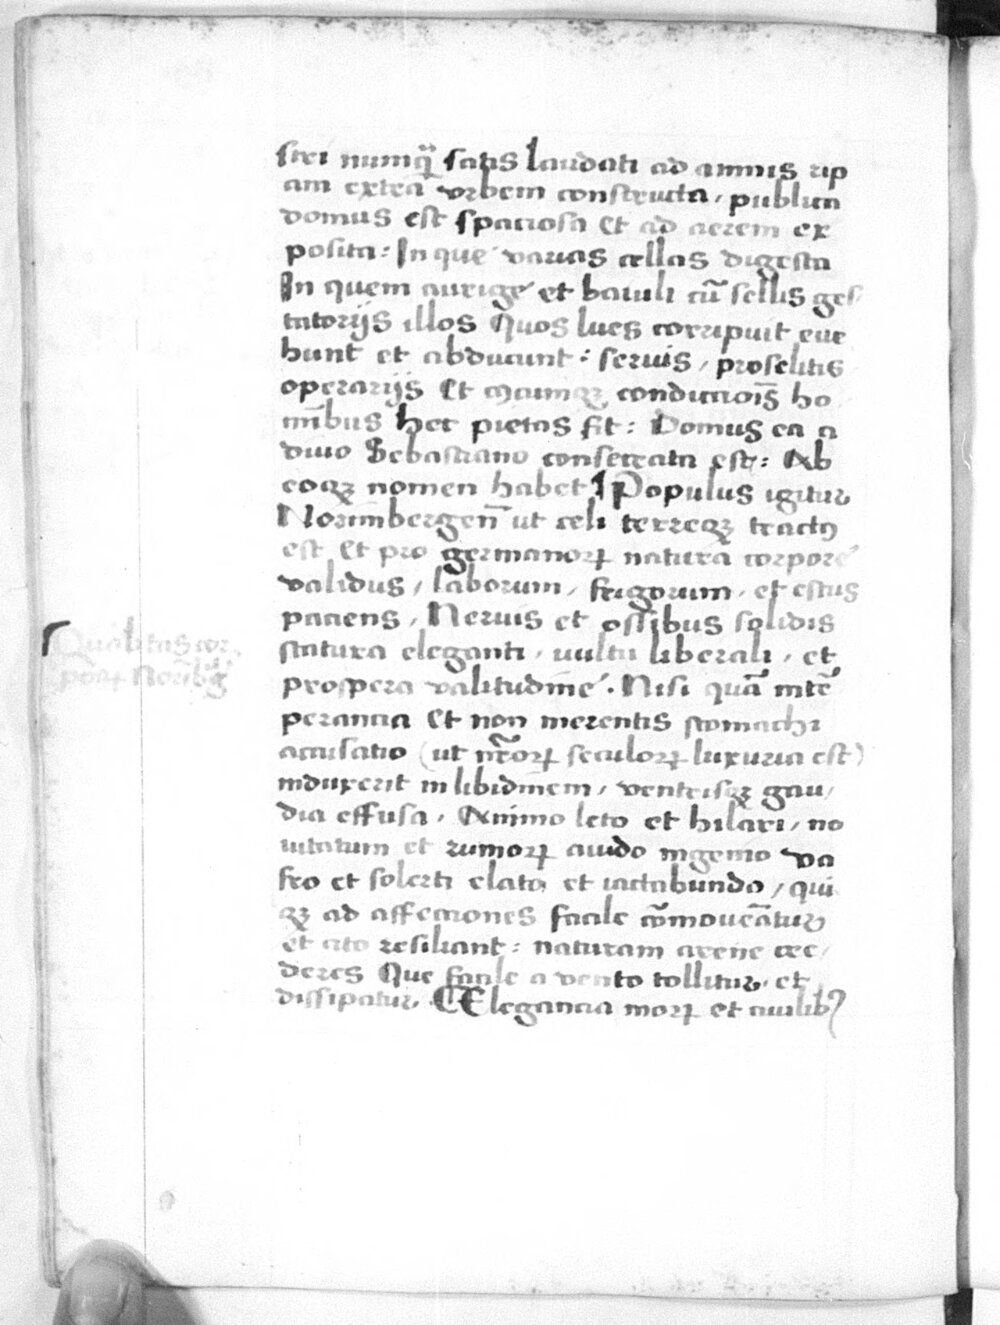 stri numq̃ satis laudati ad amnis rip
am extra vrbem constructa, publica
domus est spaciosa et ad aerem ex
posita: In que varias cellas digesta
In quem aurige et baiuli cũ sellis ges
tatorijs illos Quos lues corripuit eue
hunt et abducunt: seruis, proselitis
operarijs Et conductiõis ho
mĩbus hec pietas fit: Domus ea a
diuo Sebastiano consecrata est: Ab
eoqꝫ nomen habet ¶ Populus igitur
Norimbergen̄ ut celi terreqꝫ tractꝯ
est Et pro germanorꝝ natura corpore
validus, laborum, frigorum, et estus
paciens, Neruis et ossibus solidis
statura eleganti, uultu liberali, et
prospera valitudine. Nisi quã intẽ
perancia Et non merentis stomachi
accusatio (ut nr̃orꝝ seculorꝝ luxuria est)
induxerit in libidinem, ventrisqꝫ gau,
dia effusa, Animo leto et hilari, no
uitatum et rumorꝝ auido ingenio va
fro et solerti elato, et iactabundo, qui
qꝫ ad affectiones facile cõmoueãtur
et cito resiliant: naturam arene cre,
deres Que facile a vento tollitur, et
dissipatur. ¶ Elegancia morꝝ et ciuilib9
Qualitas cor
porꝝ Norĩb'g